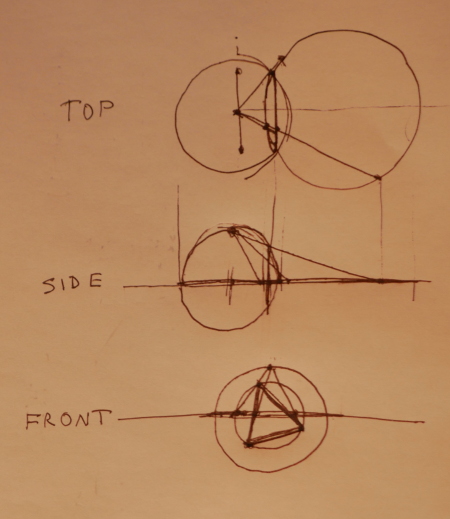 i
TOP
SIDE
FRONT